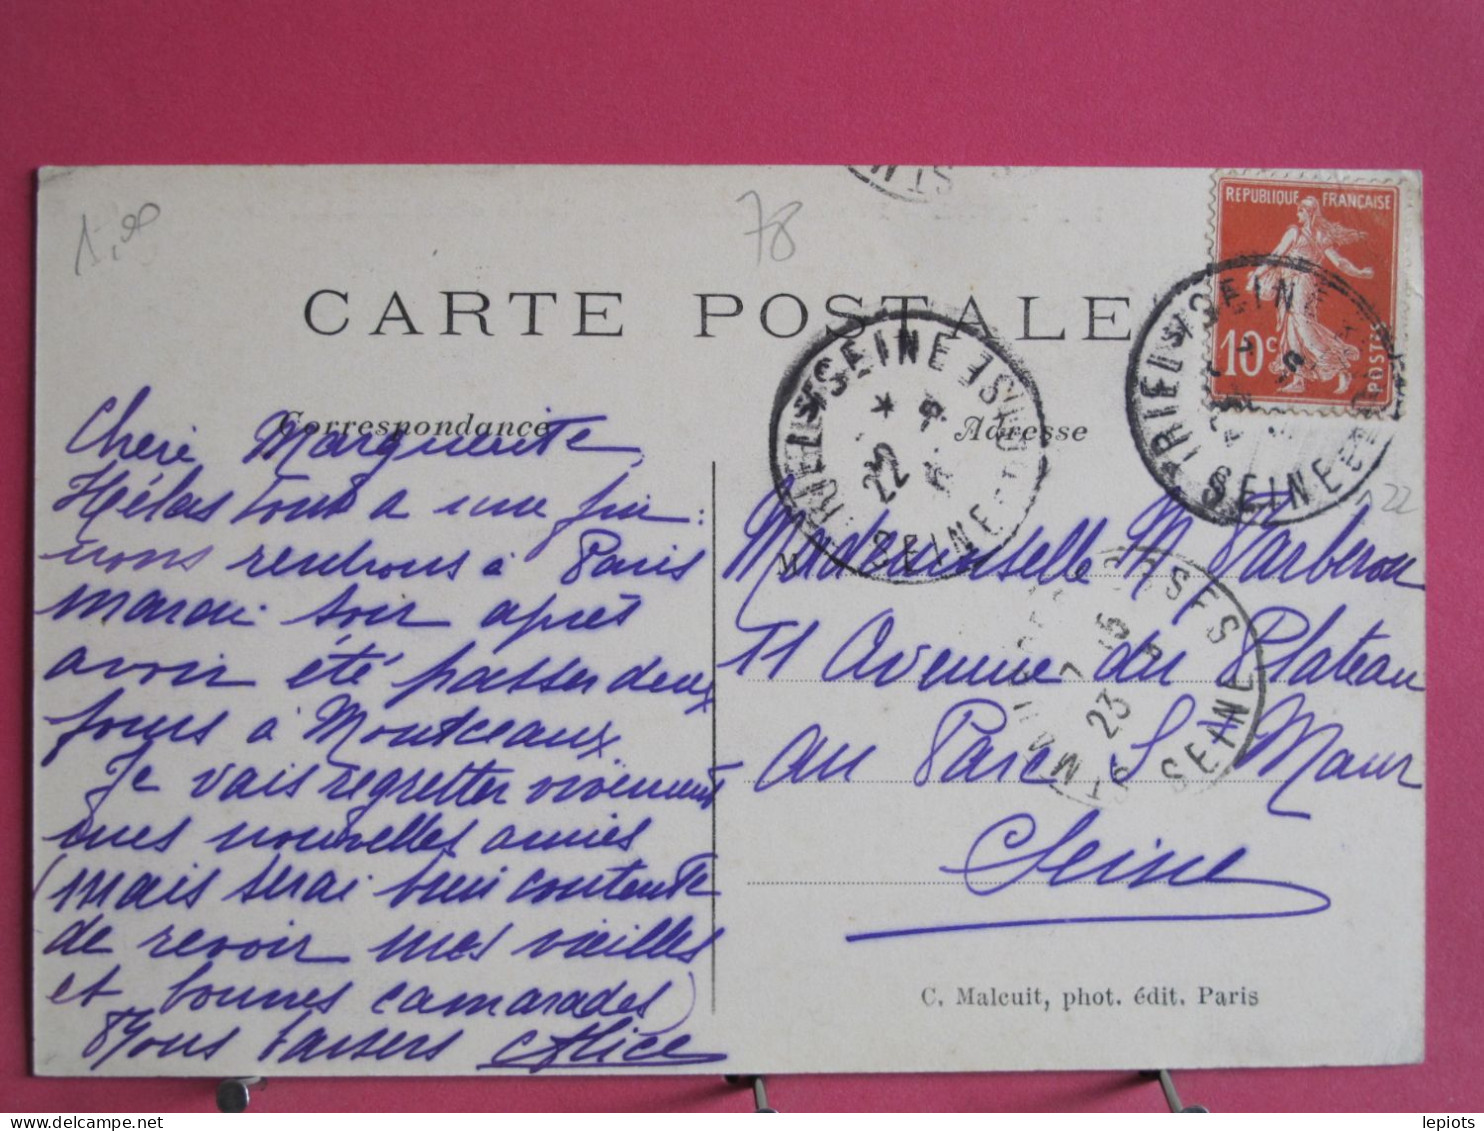 1,00
78
CARTE POSTALE
REPUBLIQUE FRANÇAISE
10c
POSTES
Correspondance
Adresse
TRIEL S/SEINE
SEINE
22
TRIEL S/SEINE
SEINE & OISE
22
Chère Marguerite,
Hélas tout a une fin :
nous rentrons à Paris
mardi soir après
avoir été passer deux
jours à Montceaux
Je vais regretter vivement
mes nouvelles amies
(mais serai bien contente
de revoir mes vieilles
et bonnes camarades)
Bons baisers Alice
Mademoiselle M Barberon
11 Avenue du Plateau
au Parc St Maur
Seine
ST MAUR
FOSSES
7 15
23
SEINE
C. Malcuit, phot. édit. Paris
lepiots